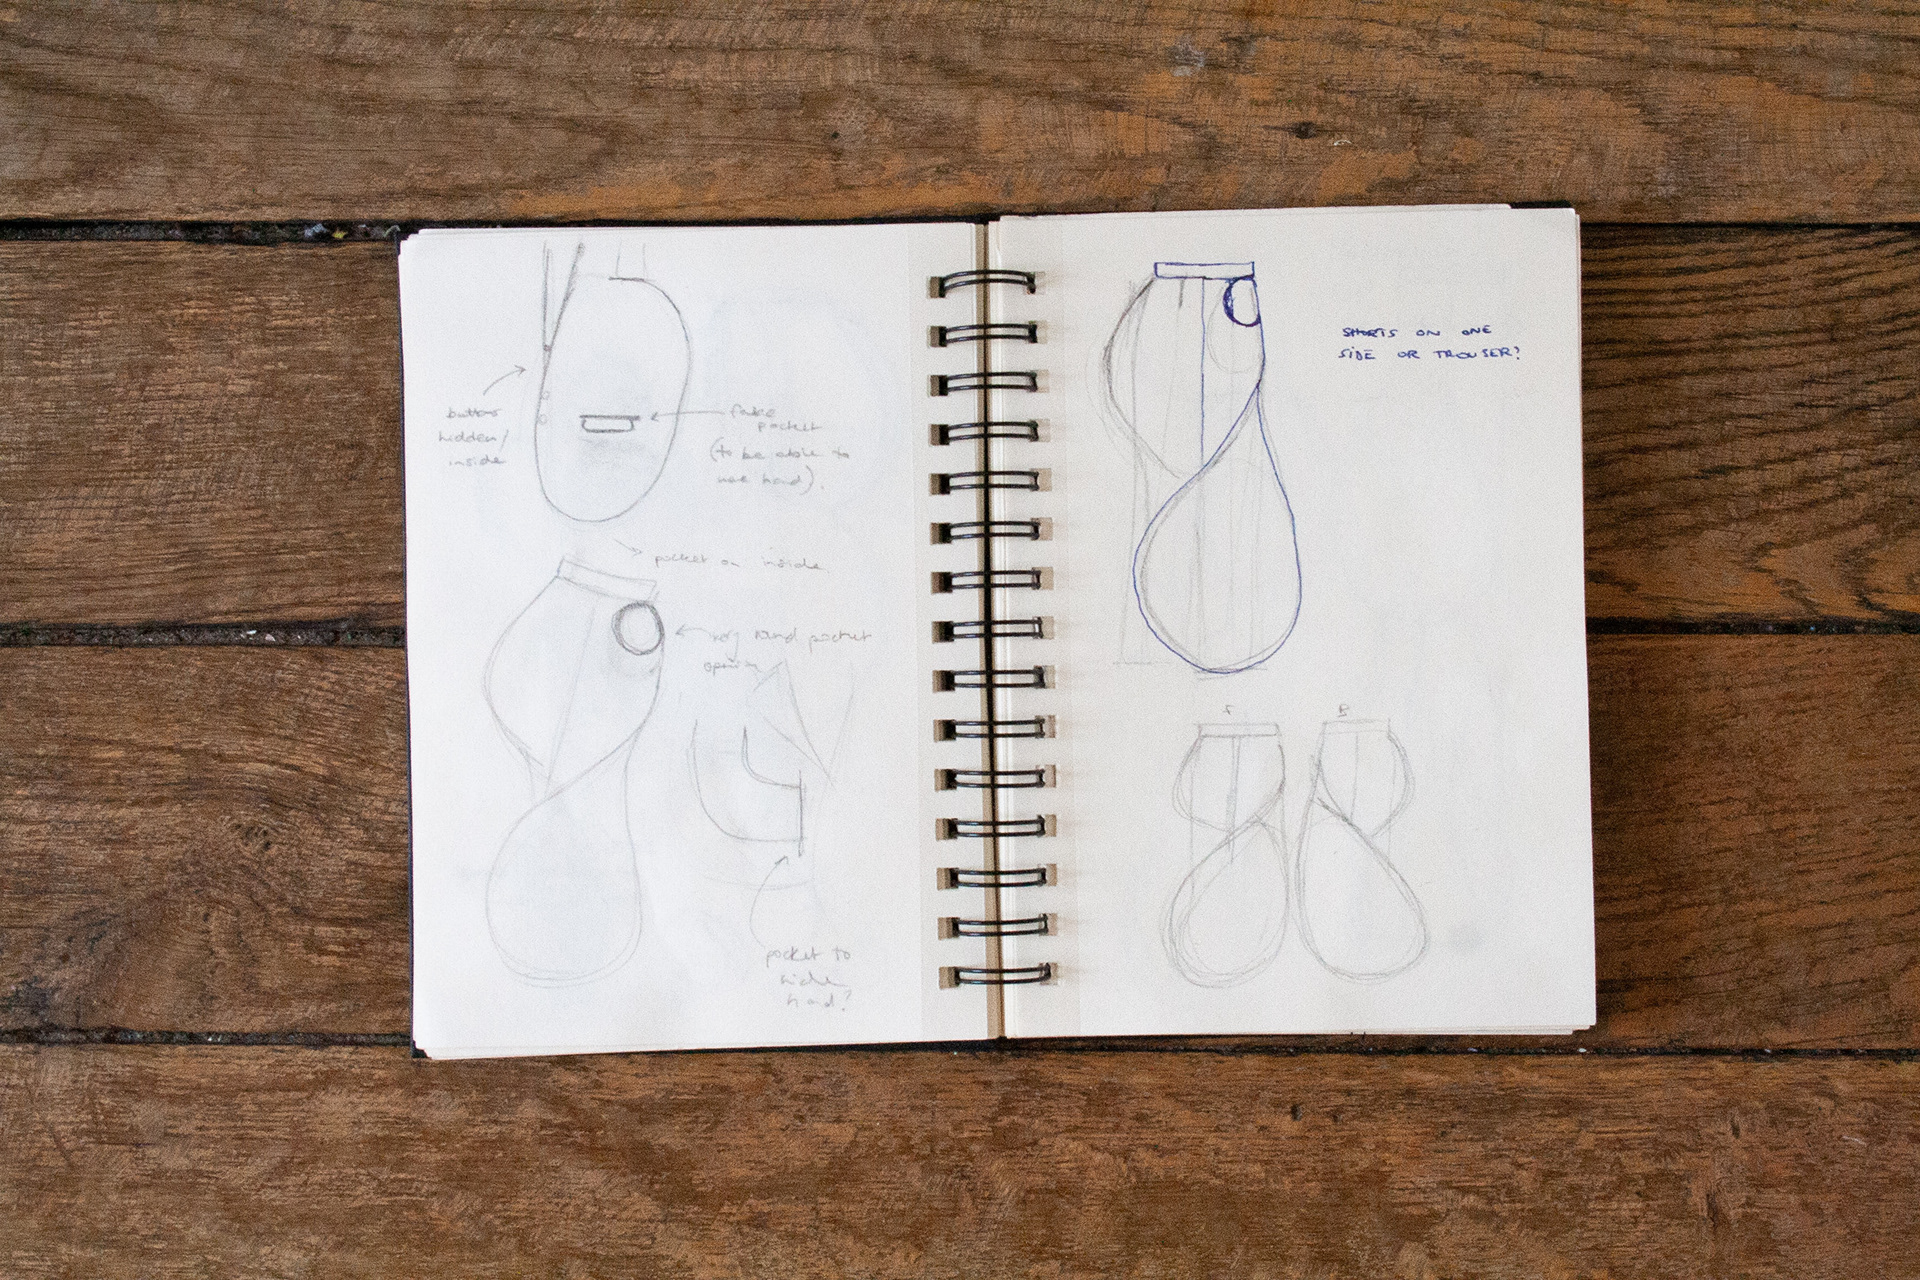 buttons
hidden/
inside
fake
pocket
(to be able to
use hand).
pocket on inside
very round pocket
opening
pocket to
hide
hand?
SHORTS ON ONE
SIDE OR TROUSER?
F
B